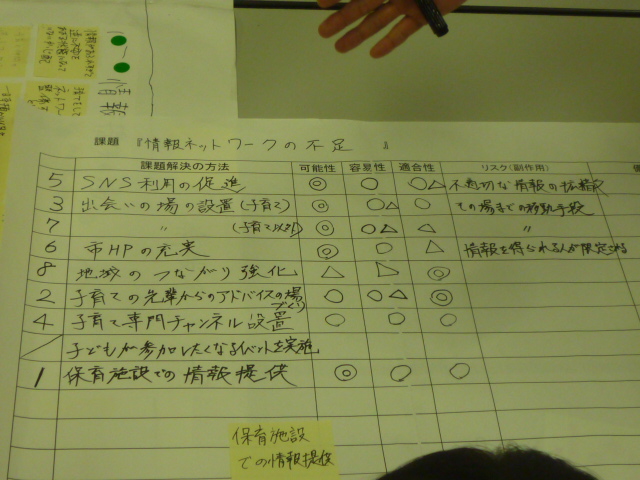 情報
課題 『情報ネットワークの不足 』
課題解決の方法 可能性 容易性 適合性 リスク(副作用)
5 SNS利用の促進 ◎ ○ ○△ 不適切な情報の拡散
3 出会いの場の設置(子育て) ◎ ○△ ○ その場までの移動手段
7 〃 (子育て以外) ◎ ○△ △ 〃
6 市HPの充実 ◎ ○ △ 情報を得られる人が限定される
8 地域のつながり強化 △ △ ◎
2 子育ての先輩からのアドバイスの場づくり ○ ○△ ◎
4 子育て専門チャンネル設置 ○ ○ ○
子どもが参加したくなるイベントを実施
1 保育施設での情報提供 ◎ ○ ○
保育施設
での情報提供